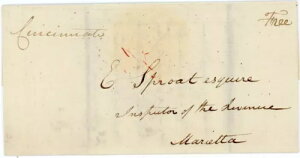 Cincinnati
Free
E. Sproat esquire
Inspector of the Revenue
Marietta